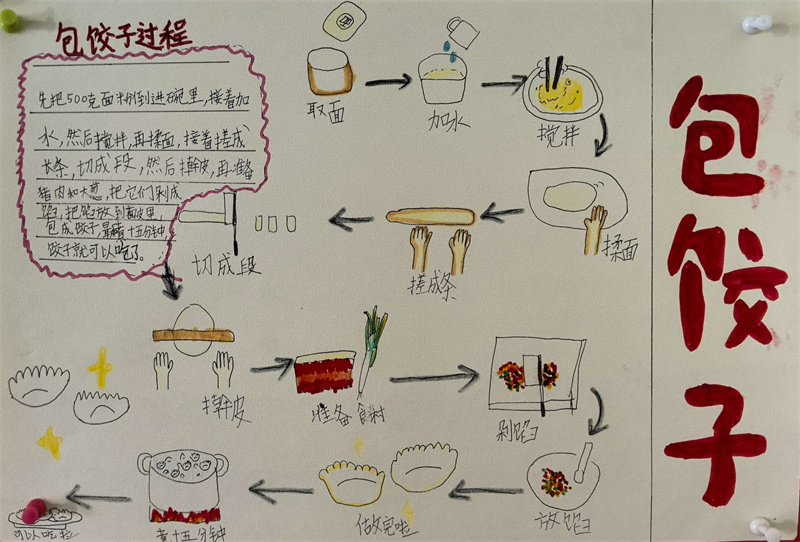 包饺子过程
先把500克面粉倒进碗里,接着加
水,然后搅拌,再揉面,接着搓成
长条,切成段,然后擀皮,再准备
猪肉和大葱,把它们剁成
馅,把馅放到面皮里,
包成饺子,最后煮十五分钟,
饺子就可以吃了。
取面
加水
搅拌
揉面
搓成条
切成段
擀皮
准备食材
剁馅
放馅
做完啦
煮十五分钟
可以吃啦
包饺子